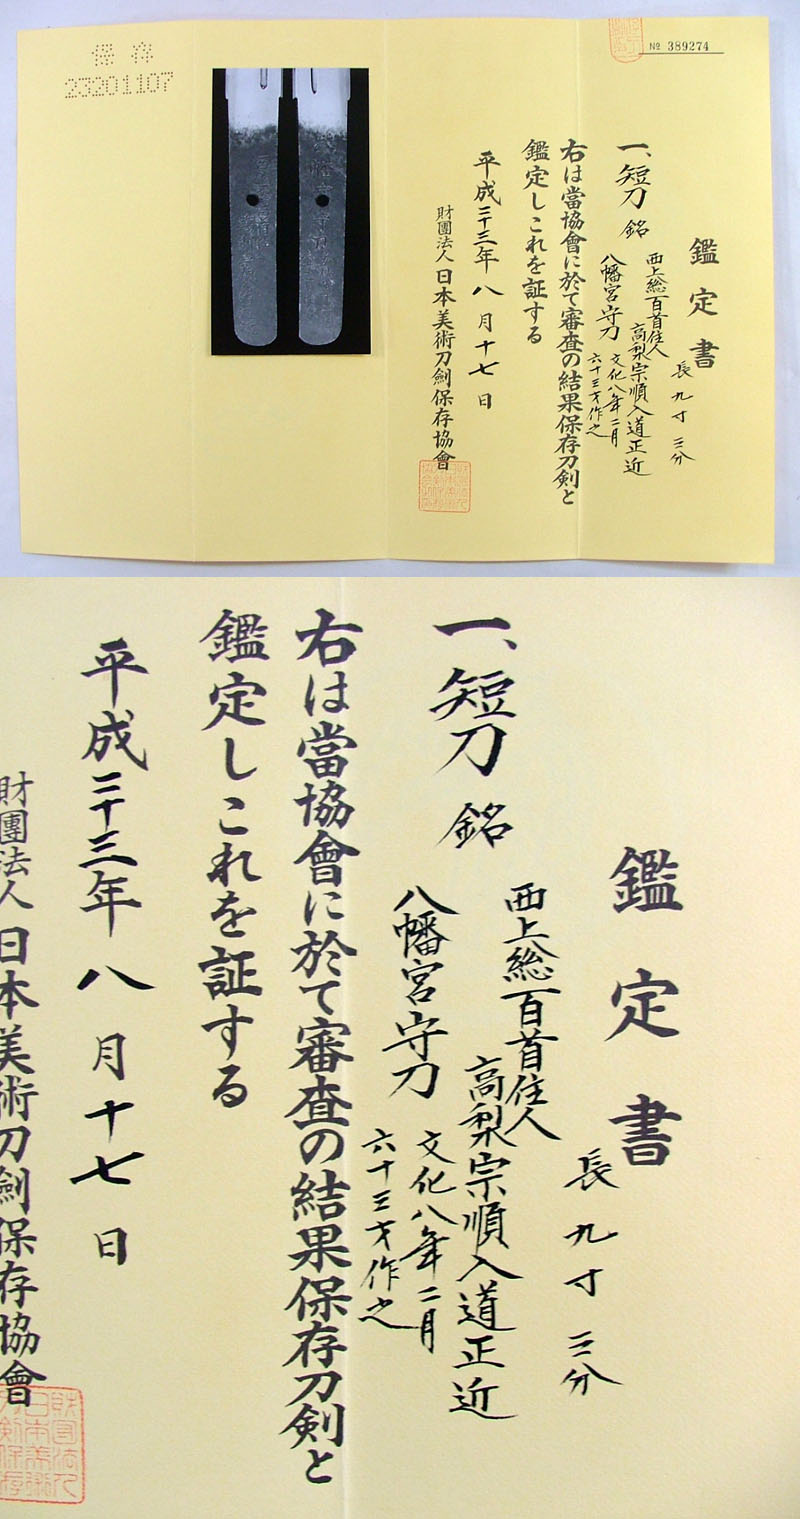 保存
23201107
№ 389274
鑑定書
長 九寸三分
一、短刀 銘
西上総百首住人
高梨宗順入道正近
八幡宮守刀
文化八年二月
六十三才作之
右は當協會に於て審査の結果保存刀剣と
鑑定しこれを証する
平成二十三年八月十七日
財團法人日本美術刀劍保存協會
鑑定書
長 九寸三分
一、短刀 銘
西上総百首住人
高梨宗順入道正近
八幡宮守刀
文化八年二月
六十三才作之
右は當協會に於て審査の結果保存刀剣と
鑑定しこれを証する
平成二十三年八月十七日
財團法人日本美術刀劍保存協會